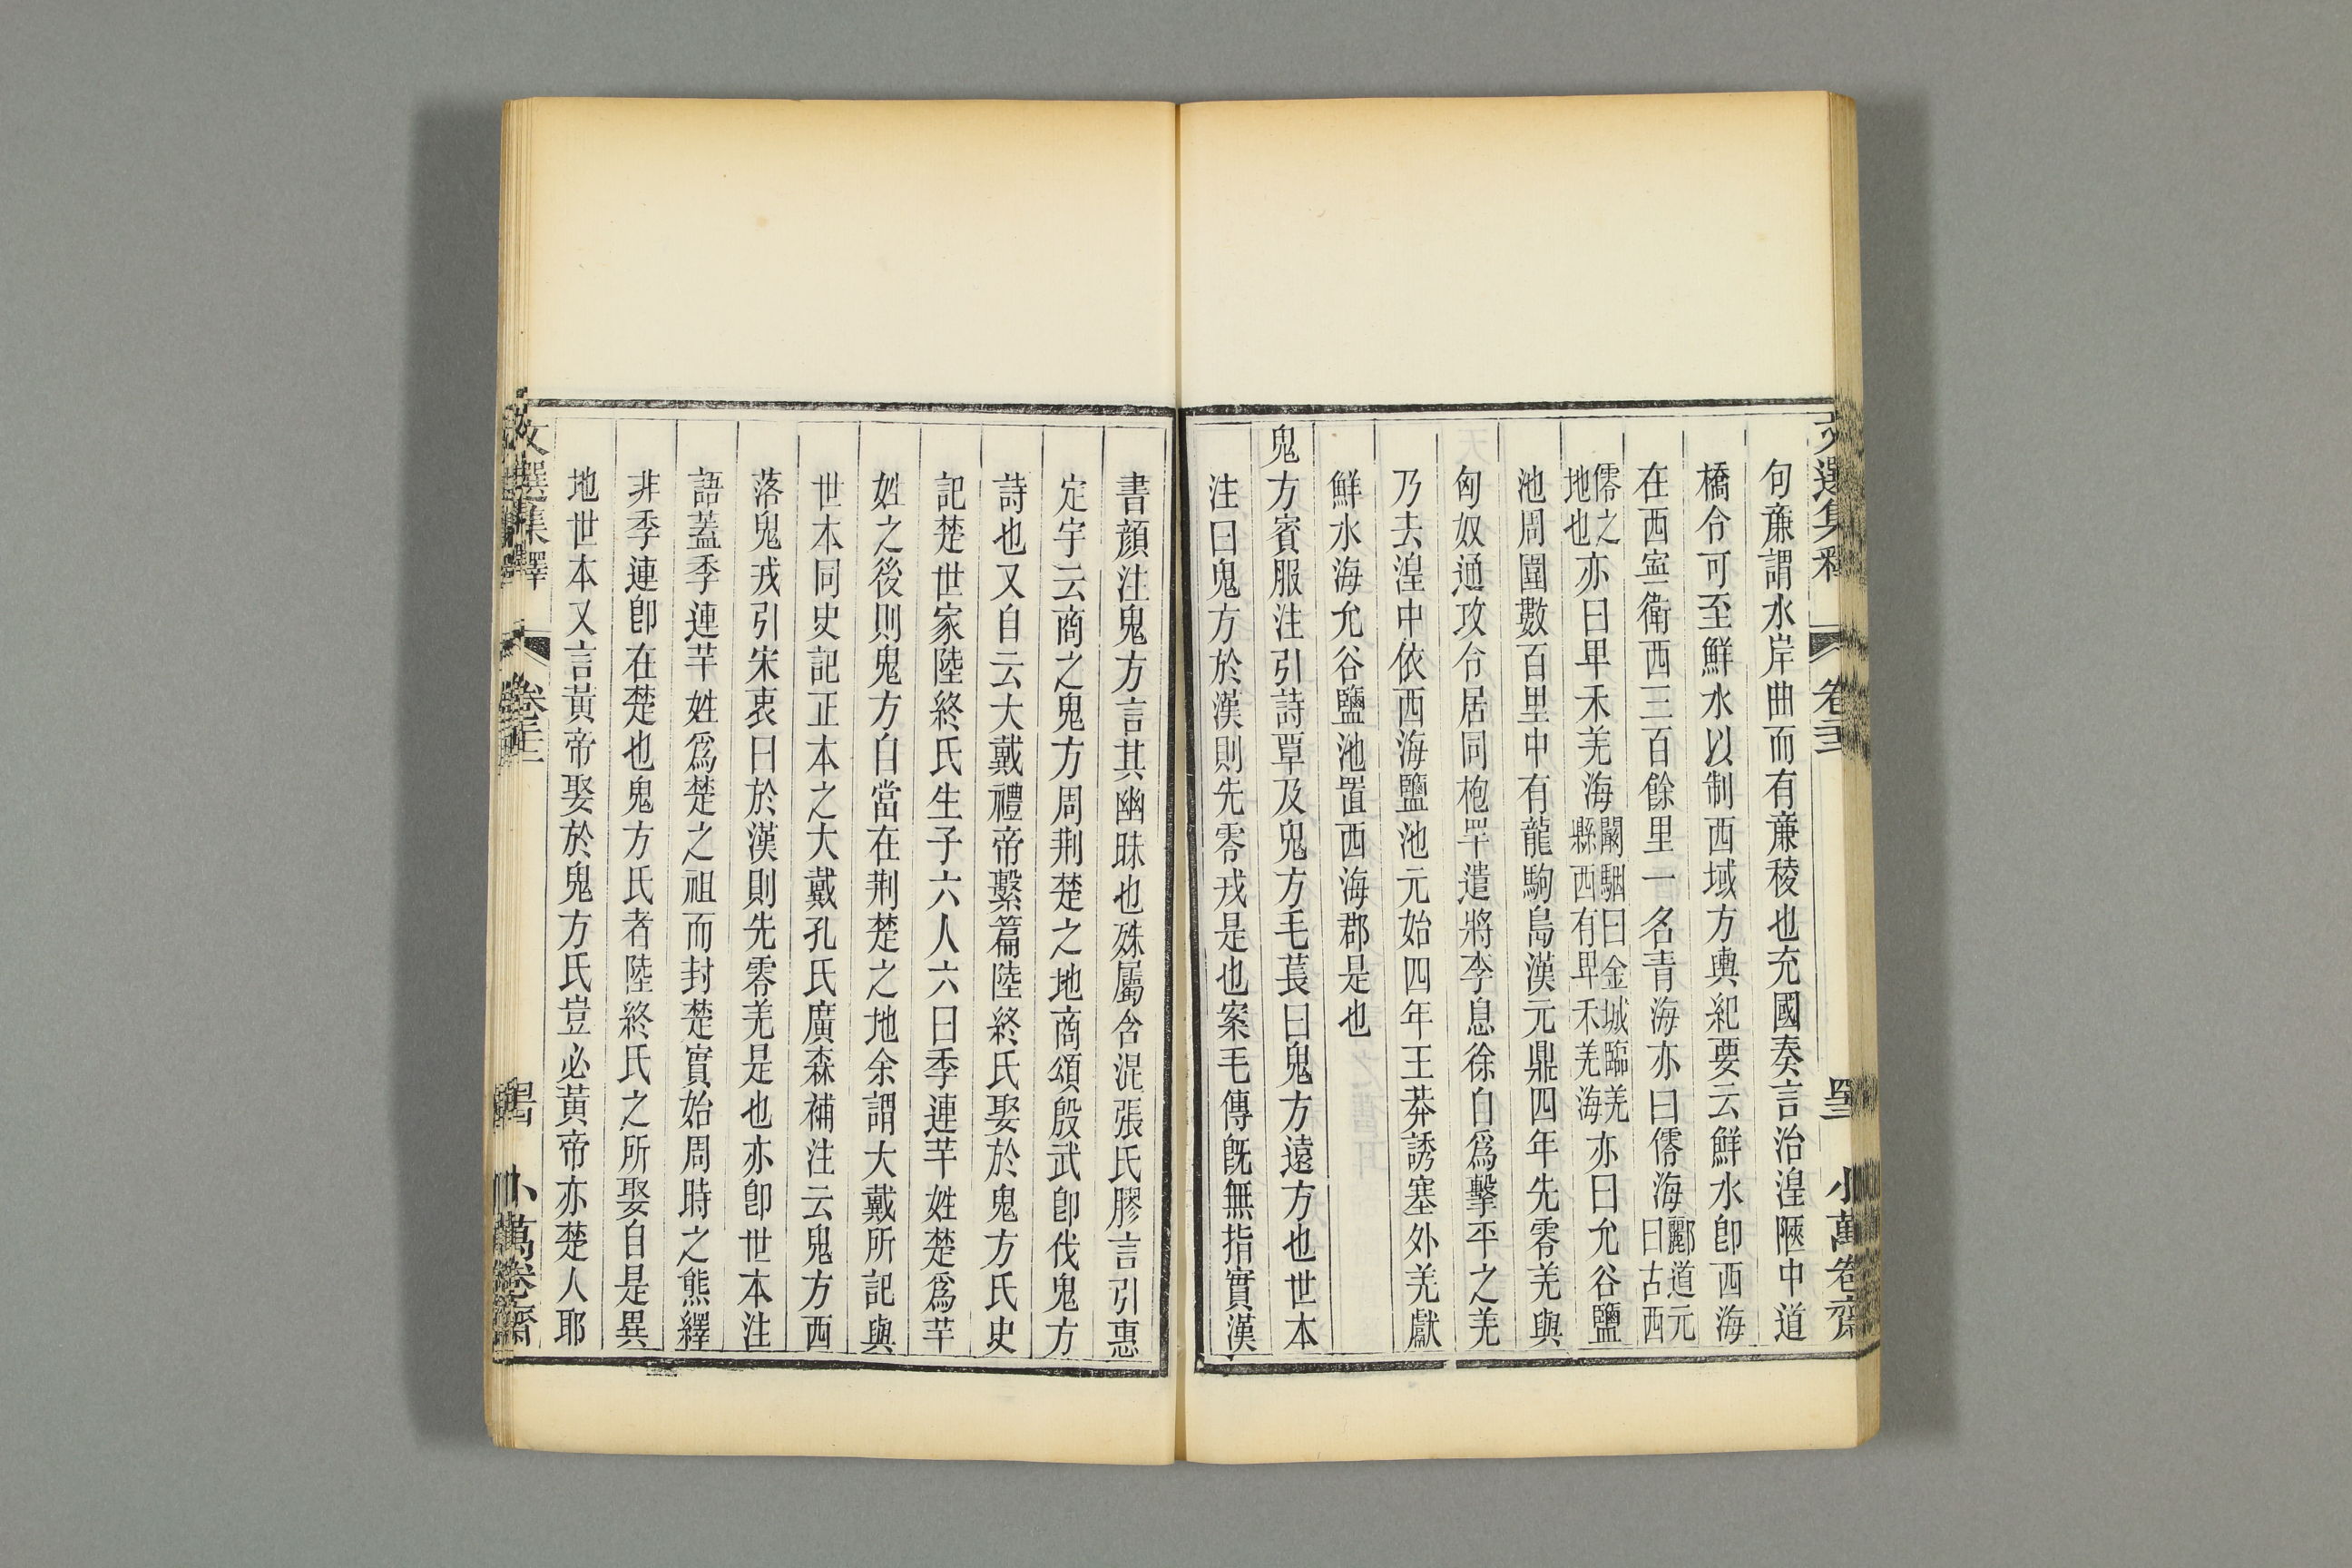 句亷謂水岸曲而有亷稜也充國奏言治湟陿中道
橋令可至鮮水以制西域方輿紀要云鮮水卽西海
在西寧衛西三百餘里一名青海亦曰僊海酈道元曰古西
僊之地也亦曰卑禾羌海闞駰曰金城臨羌縣西有卑禾羌海亦曰允谷鹽
池周圍數百里中有龍駒島漢元鼎四年先零羌與
匈奴通攻令居同枹罕遣將李息徐自爲擊平之羌
乃去湟中依西海鹽池元始四年王莽誘塞外羌獻
鮮水海允谷鹽池置西海郡是也
鬼方賓服注引詩覃及鬼方毛萇曰鬼方遠方也世本
注曰鬼方於漢則先零戎是也案毛傳旣無指實漢
書顏注鬼方言其幽昧也殊屬含混張氏膠言引惠
定宇云商之鬼方周荆楚之地商頌殷武卽伐鬼方
詩也又自云大戴禮帝繫篇陸終氏娶於鬼方氏史
記楚世家陸終氏生子六人六曰季連芈姓楚爲芈
姓之後則鬼方自當在荆楚之地余謂大戴所記與
世本同史記正本之大戴孔氏廣森補注云鬼方西
落鬼戎引宋衷曰於漢則先零羌是也亦卽世本注
語蓋季連芈姓爲楚之祖而封楚實始周時之熊繹
非季連卽在楚也鬼方氏者陸終氏之所娶自是異
地世本又言黃帝娶於鬼方氏豈必黃帝亦楚人耶
文選集釋
卷
小萬卷齋